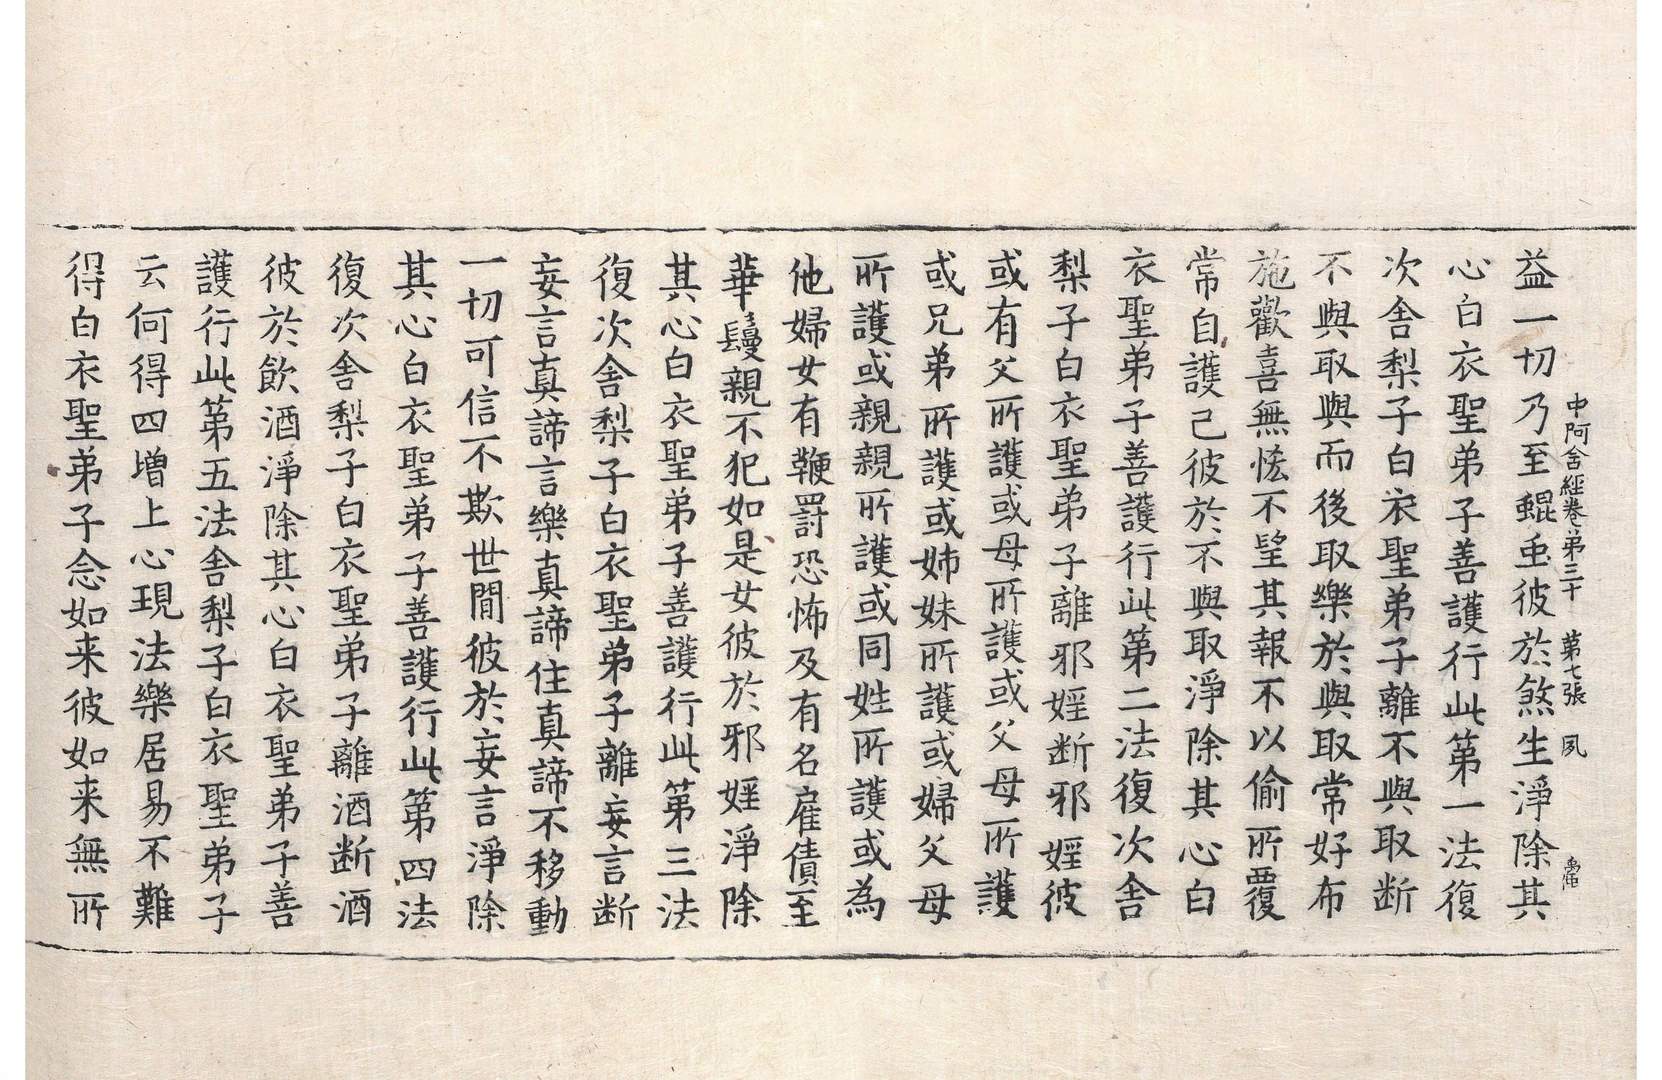 中阿含經卷第三十　第七張　夙
益一切乃至蜫䖝彼於煞生淨除其
心白衣聖弟子善護行此第一法復
次舍梨子白衣聖弟子離不與取断
不與取與而後取樂於與取常好布
施歡喜無悋不望其報不以偷所覆
常自護己彼於不與取淨除其心白
衣聖弟子善護行此第二法復次舍
梨子白衣聖弟子離邪婬断邪婬彼
或有父所護或母所護或父母所護
或兄弟所護或姉妹所護或婦父母
所護或親親所護或同姓所護或為
他婦女有鞭罸恐怖及有名雇債至
華鬘親不犯如是女彼於邪婬淨除
其心白衣聖弟子善護行此第三法
復次舍梨子白衣聖弟子離妄言断
妄言真諦言樂真諦住真諦不移動
一切可信不欺世間彼於妄言淨除
其心白衣聖弟子善護行此第四法
復次舍梨子白衣聖弟子離酒断酒
彼於飲酒淨除其心白衣聖弟子善
護行此第五法舍梨子白衣聖弟子
云何得四增上心現法樂居易不難
得白衣聖弟子念如来彼如来無所